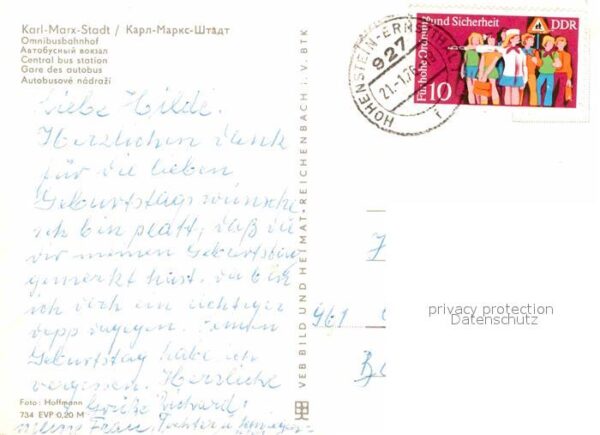 Karl-Marx-Stadt / Карл-Маркс-Штадт
Omnibusbahnhof
Автобусный вокзал
Central bus station
Gare des autobus
Autobusové nádraží
Liebe Hilde.
Herzlichen dank
für die lieben
Geburtstagswünsche
ich bin platt, daß du
dir meinen Geburtstag
gemerkt hast. da bin
ich doch ein richtiger
depp dagegen. deinen
Geburtstag habe ich
vergessen. Herzliche
Grüße Richard
meine Frau, Tochter u.
Foto: Hoffmann
734 EVP 0,20 M
VEB BILD UND HEIMAT · REICHENBACH I. V. BTK
HOHENSTEIN-ERNSTTHAL
927
21.-1.76
f
Für hohe Ordnung und Sicherheit
DDR
10
961
privacy protection
Datenschutz